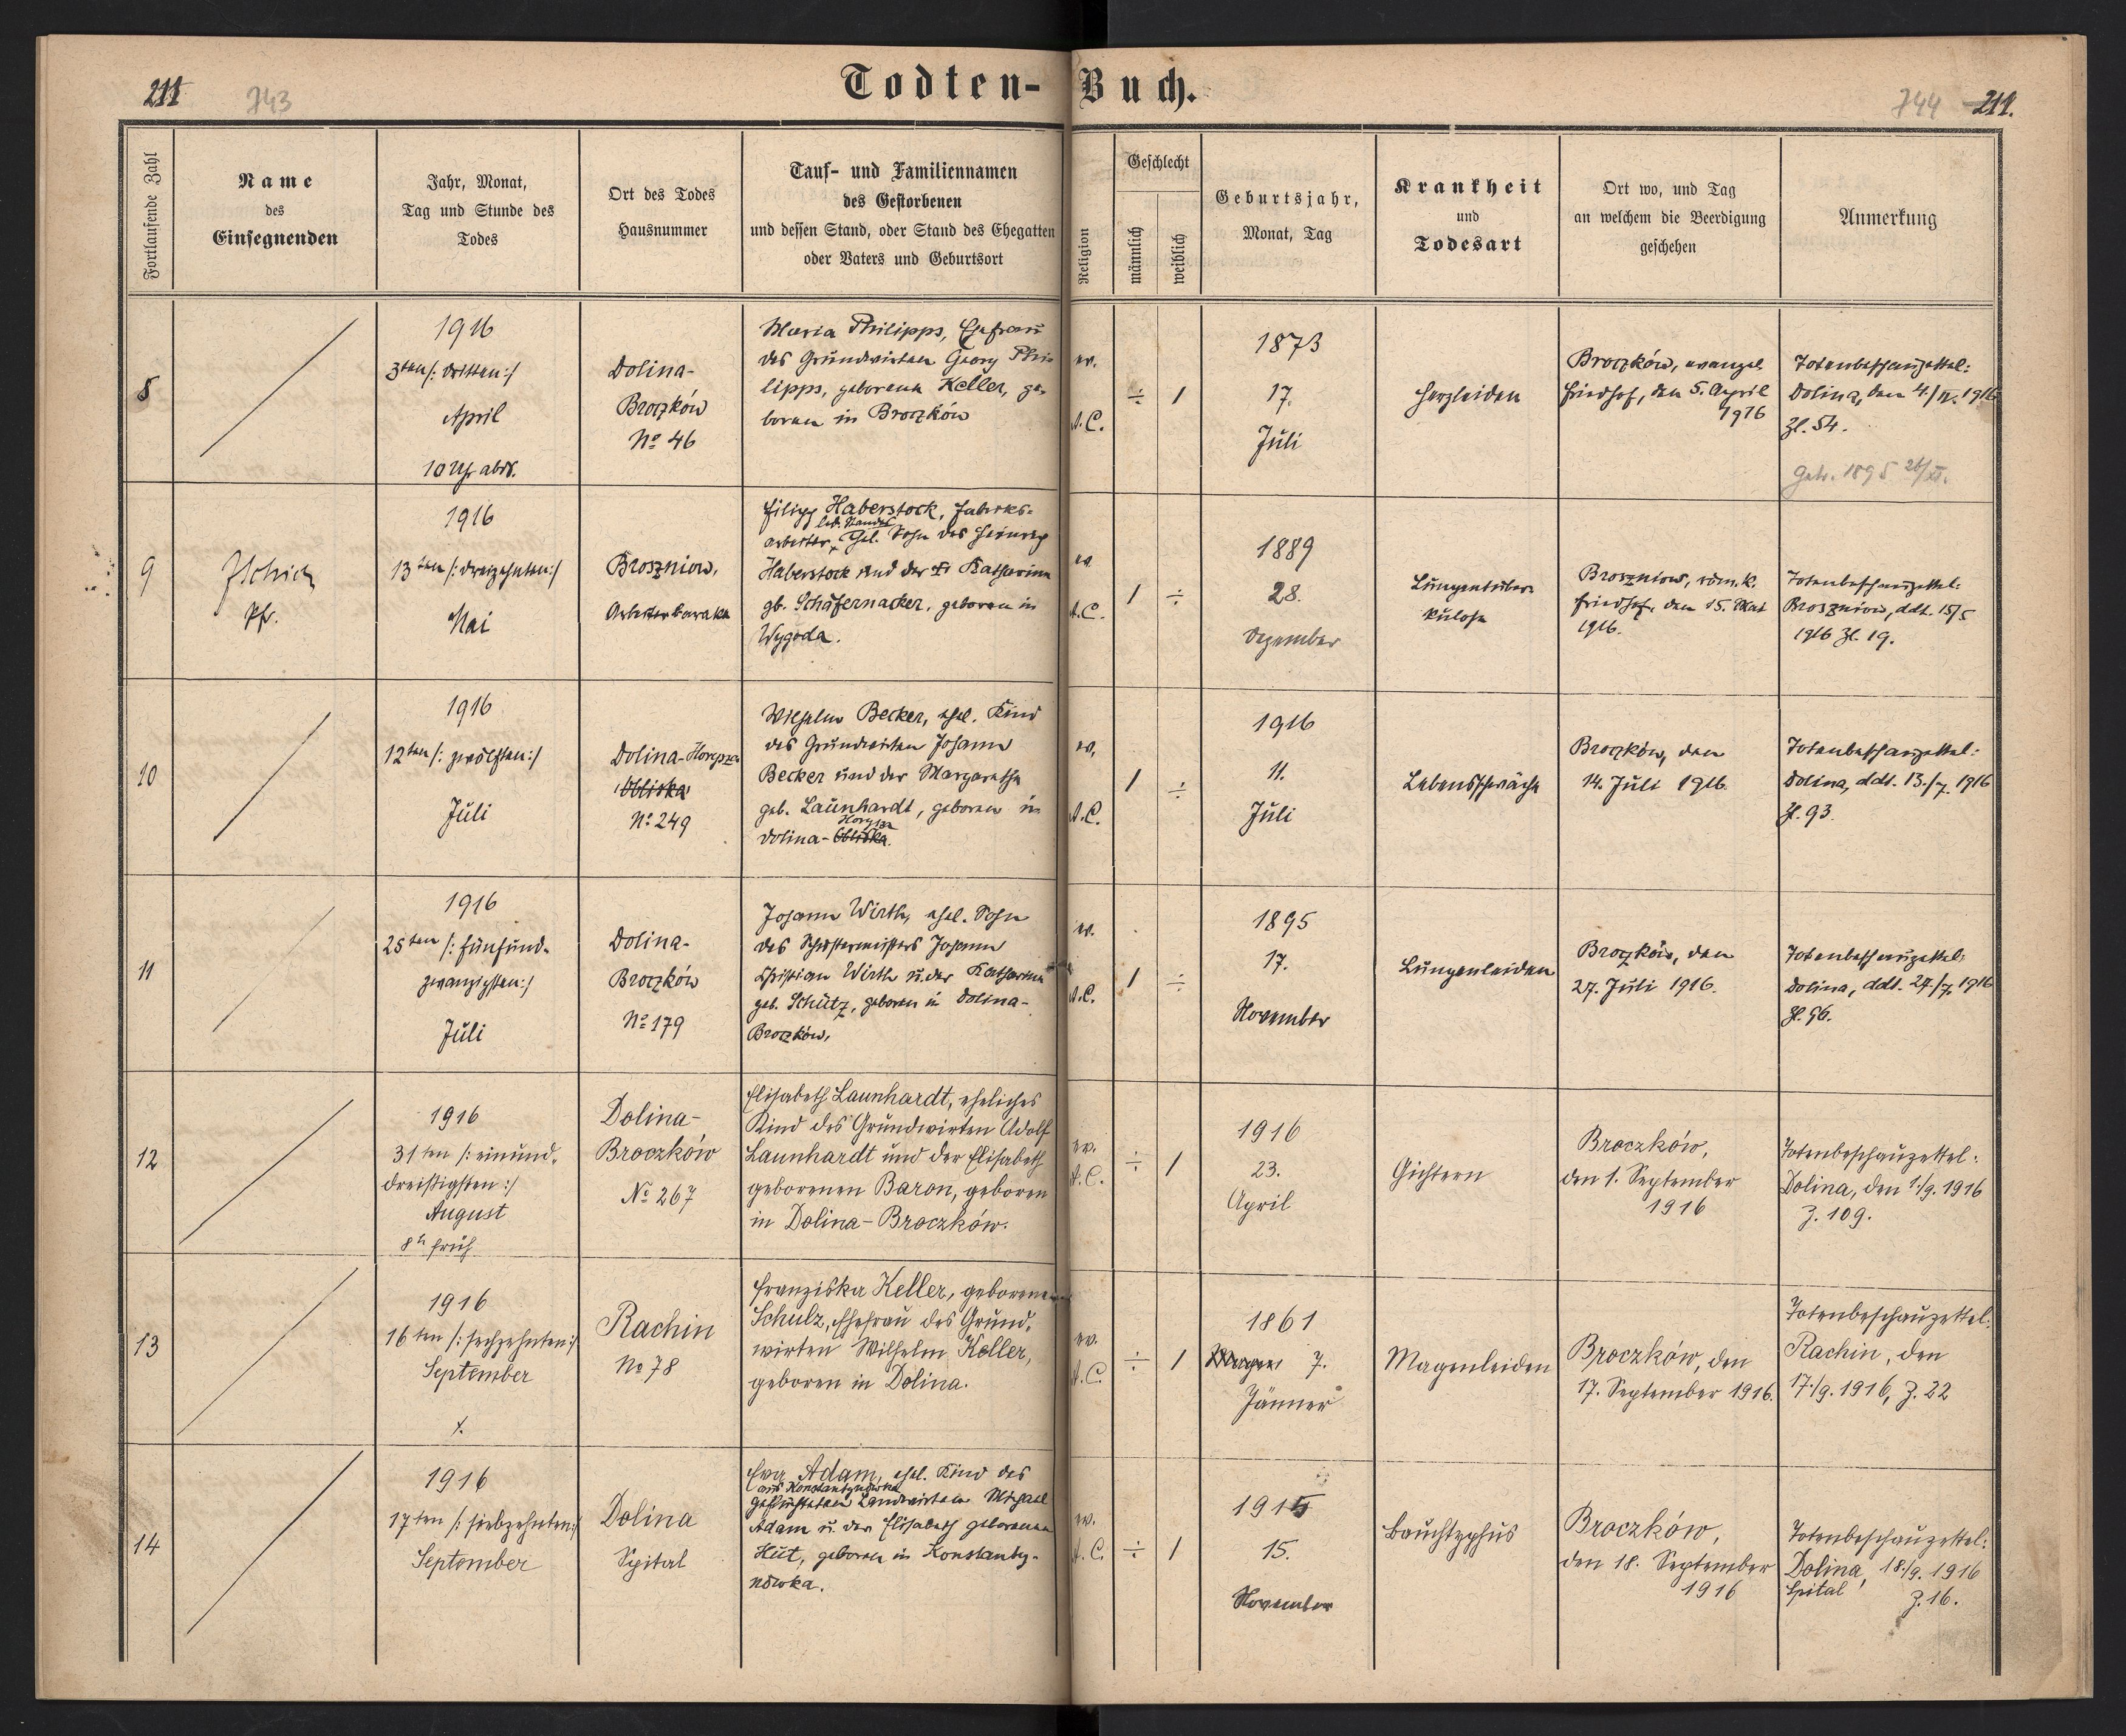 211 743
Todten-Buch.
744 211.
Fortlaufende Zahl
Name
des
Einsegnenden
Jahr, Monat,
Tag und Stunde des
Todes
Ort des Todes
Hausnummer
Tauf- und Familiennamen
des Gestorbenen
und dessen Stand, oder Stand des Ehegatten
oder Vaters und Geburtsort
Religion
Geschlecht
männlich
weiblich
Geburtsjahr,
Monat, Tag
Krankheit
und
Todesart
Ort wo, und Tag
an welchem die Beerdigung
geschehen
Anmerkung
8
1916
3ten /: dritten :/
April
10 Uhr abds.
Dolina-
Broczków
No 46
Maria Philipps, Ehefrau
des Grundwirten Georg Phi-
lipps, geborene Keller, ge-
boren in Broczków
ev.
A.C.
÷
1
1873
17.
Juli
Herzleiden
Broczków, evangel
Friedhof, den 5. April
1916
Totenbeschauzettel:
Dolina, den 4./IV. 1916
Zl. 54.
Getr. 1895 26/XI.
9
Zschich
Pfr.
1916
13ten /: dreizehnten :/
Mai
Broszniow,
Arbeiterbarake
Filipp Haberstock, Fabriks-
led. Standes
arbeiter, Ehel. Sohn des Heinrich
Haberstock und der Katharina
gb. Schäfernacker, geboren in
Wygoda.
ev
A.C.
1
÷
1889
28.
Dezember
Lungentuber-
kulose
Broszniow, röm. k.
Friedhof, den 15. Mai
1916.
Totenbeschauzettel:
Broszniow, ddt. 15/5
1916 Zl. 19.
10
1916
12ten /: zwölften :/
Juli
Dolina-
Obliska
No 249
Wilhelm Becker, ehel. Kind
des Grundwirten Johann
Becker und der Margarethe
geb. Launhardt, geboren in
Dolina- Obliska.
ev.
A.C.
1
÷
1916
11.
Juli
Lebensschwäche
Broczków, den
14. Juli 1916.
Totenbeschauzettel:
Dolina, ddt. 13./7. 1916
Zl. 93.
11
1916
25ten /: fünfund-
zwanzigsten :/
Juli
Dolina-
Broczków
No 179
Johann Wirth, ehel. Sohn
des Schustermeisters Johann
Christian Wirth u. der Katharina
geb. Schütz, geboren in Dolina-
Broczków,
ev.
A.C.
1
÷
1895
17.
November
Lungenleiden
Broczków, den
27. Juli 1916.
Totenbeschauzettel:
Dolina, ddt. 27./7. 1916
Zl. 96.
12
1916
31ten /: einund-
dreißigsten :/
August
8h früh
Dolina-
Broczków
No 267
Elisabeth Launhardt, eheliches
Kind des Grundwirten Adolf
Launhardt und der Elisabeth
geborenen Baron, geboren
in Dolina-Broczków.
ev.
A.C.
÷
1
1916
23.
April
Gichtern
Broczków,
den 1. September
1916
Totenbeschauzettel:
Dolina, den 1./9. 1916
Z. 109.
13
1916
16ten /: sechzehnten :/
September
Rachin
No 78
Franziska Keller, geborene
Schulz, Ehefrau des Grund-
wirten Wilhelm Keller,
geboren in Dolina.
ev.
A.C.
÷
1
1861
7.
Jänner
Magenleiden
Broczków, den
17. September 1916.
Totenbeschauzettel:
Rachin, den
17./9. 1916, Z. 22
14
1916
17ten /: siebzehnten :/
September
Dolina
Spital
Eva Adam, ehel. Kind des
aus Konstantynówka
geflüchteten Landwirten Michael
Adam u. der Elisabeth geborenen
Hut, geboren in Konstanty-
nówka.
ev.
A.C.
÷
1
1915
15.
November
Bauchtyphus
Broczków,
den 18. September
1916
Totenbeschauzettel:
Dolina, 18./9. 1916
Spital Z. 16.